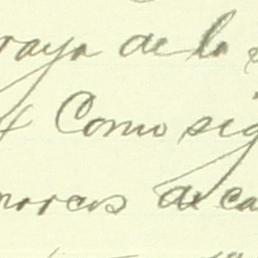 raya de la
Como sig
marcos de ca